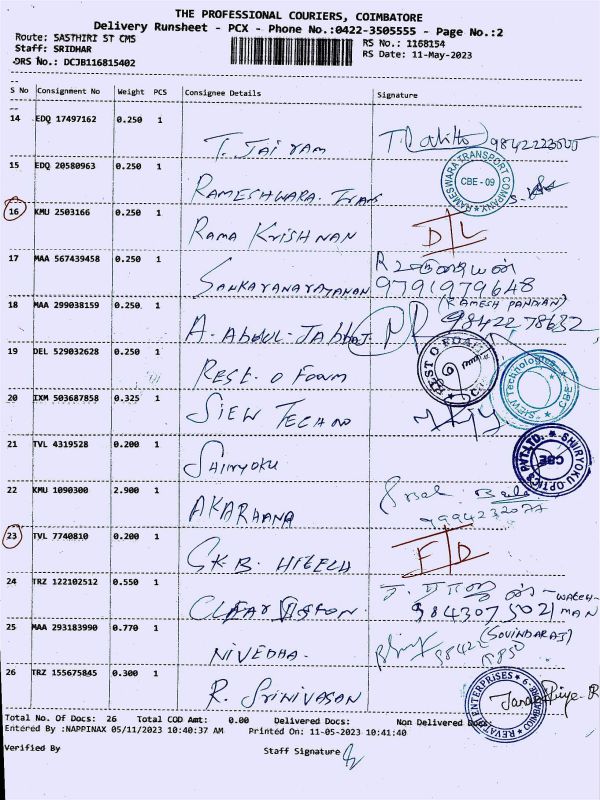 THE PROFESSIONAL COURIERS, COIMBATORE
Delivery Runsheet - PCX - Phone No.:0422-3505555 - Page No.:2
Route: SASTHIRI ST CMS
Staff: SRIDHAR
RS No.: 1168154
DRS No.: DCJB116815402
RS Date: 11-May-2023
S No Consignment No Weight PCS Consignee Details Signature
14 EDQ 17497162 0.250 1
T. Jai ram
15 EDQ 20580963 0.250 1
RAMESHWARA. Trans
RAMESWARA TRANSPORT COMPANY
CBE - 09
16 KMU 2503166 0.250 1
RAMA KRISHNAN
D L
17 MAA 567439458 0.250 1
SANKARANARAYANAN
9791979648
(RAMESH PANDIAN)
18 MAA 299038159 0.250 1
A. Abdul. Jabbar
19 DEL 529032628 0.250 1
REST. O Foam
REST O FOAM
20 IXM 503687858 0.325 1
SIEW TECHNO
Technologies
CBE
21 TVL 4319528 0.200 1
Shiryoku
SHIRYOKU OPTICS PVT. LTD.
CBE
22 KMU 1090300 2.900 1
AKARHANA
7994232077
23 TVL 7740810 0.200 1
SKB. HITECH
F D
24 TRZ 122102512 0.550 1
9843075021
WATCHMAN
25 MAA 293183990 0.770 1
NIVEDHA.
(GOVINDARAJ)
26 TRZ 155675845 0.300 1
R. SRINIVASAN
REVATHI ENTERPRISES
Total No. Of Docs: 26 Total COD Amt: 0.00 Delivered Docs: Non Delivered Docs:
Entered By :NAPPINAX 05/11/2023 10:40:37 AM Printed On: 11-05-2023 10:41:40
Verified By Staff Signature